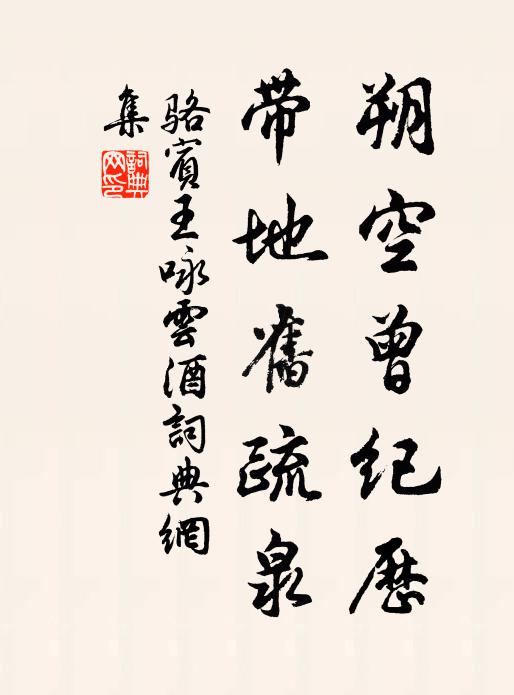 朔空曾纪歷
带地舊疏泉
骆賓王咏雲酒詞典網
集
詞典网印